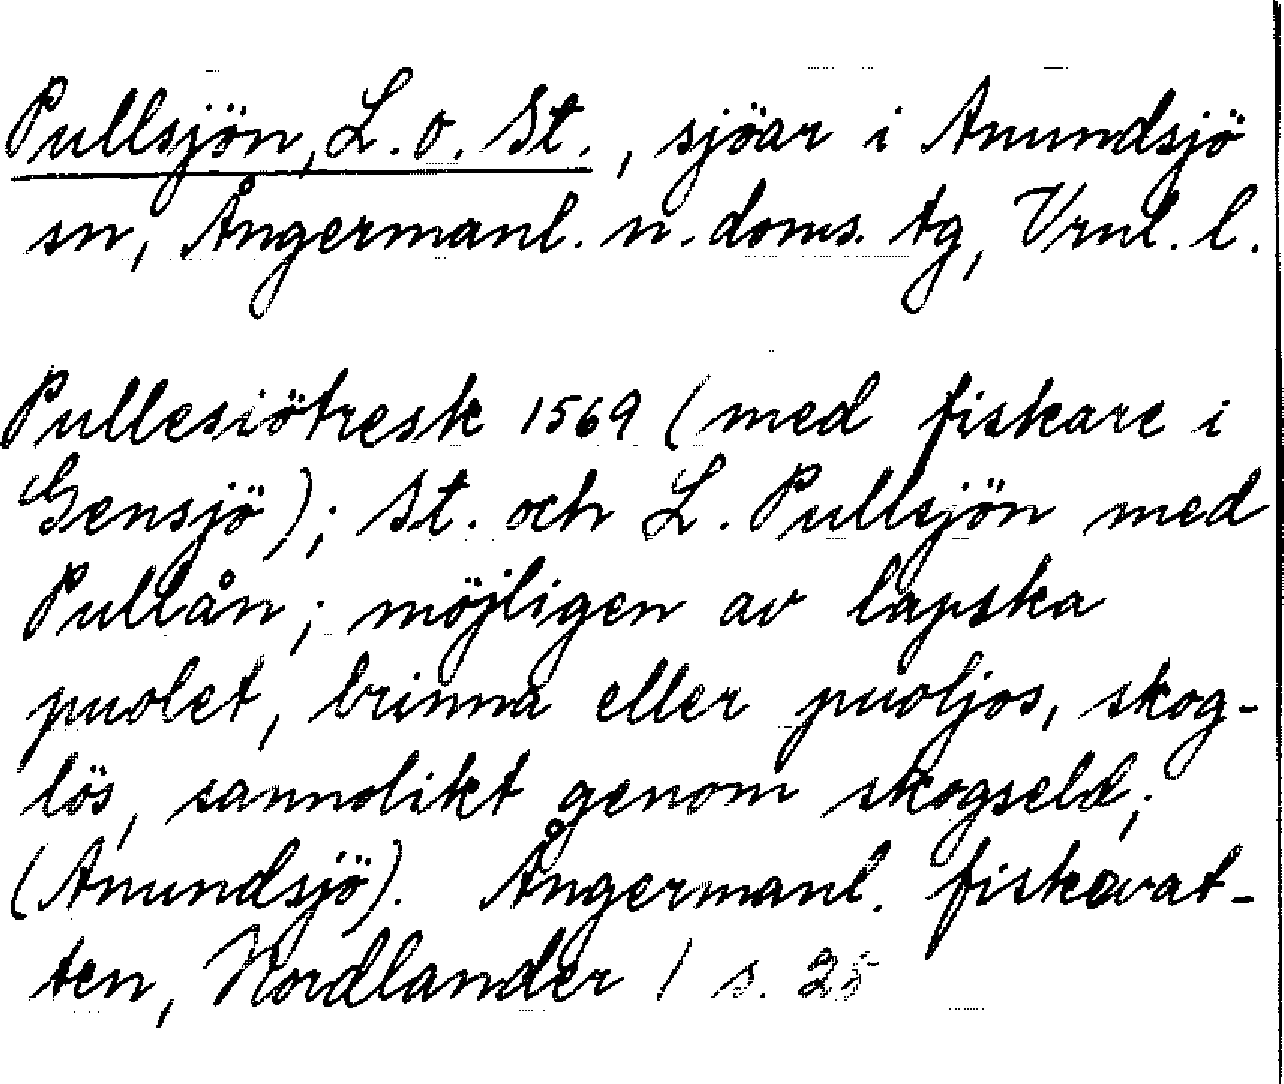 Pullsjön, L. o. St., sjöar i Anundsjö
sn, Ångermanl. n. doms. tg, Vrnl. l.
Pullesiötresk 1569 (med fiskare i
Gensjö); St. och L. Pullsjön med
Pullån; möjligen av lapska
puolet, brinna eller puoljos, skog-
lös, sannolikt genom skogseld;
(Anundsjö). Ångermanl. fiskevat-
ten, Nordlander 1 s. 25